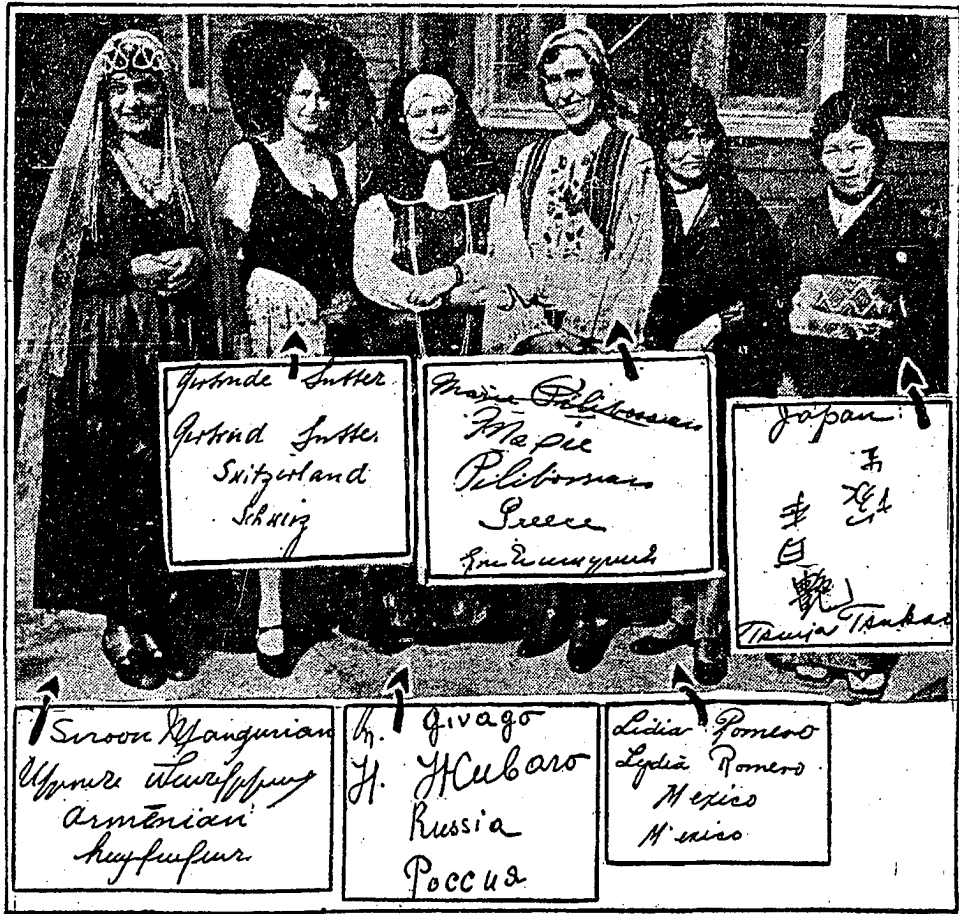 Gertrude Sutter
Gertrud Sutter
Switzerland
Schweiz
Marie Pilibossian
Marie
Pilibossian
Greece
Japan
Tsuya Tsukao
Siroon Mangurian
Armenian
N. Givago
Н. Живаго
Russia
Россия
Lidia Romero
Lydia Romero
Mexico
Mexico